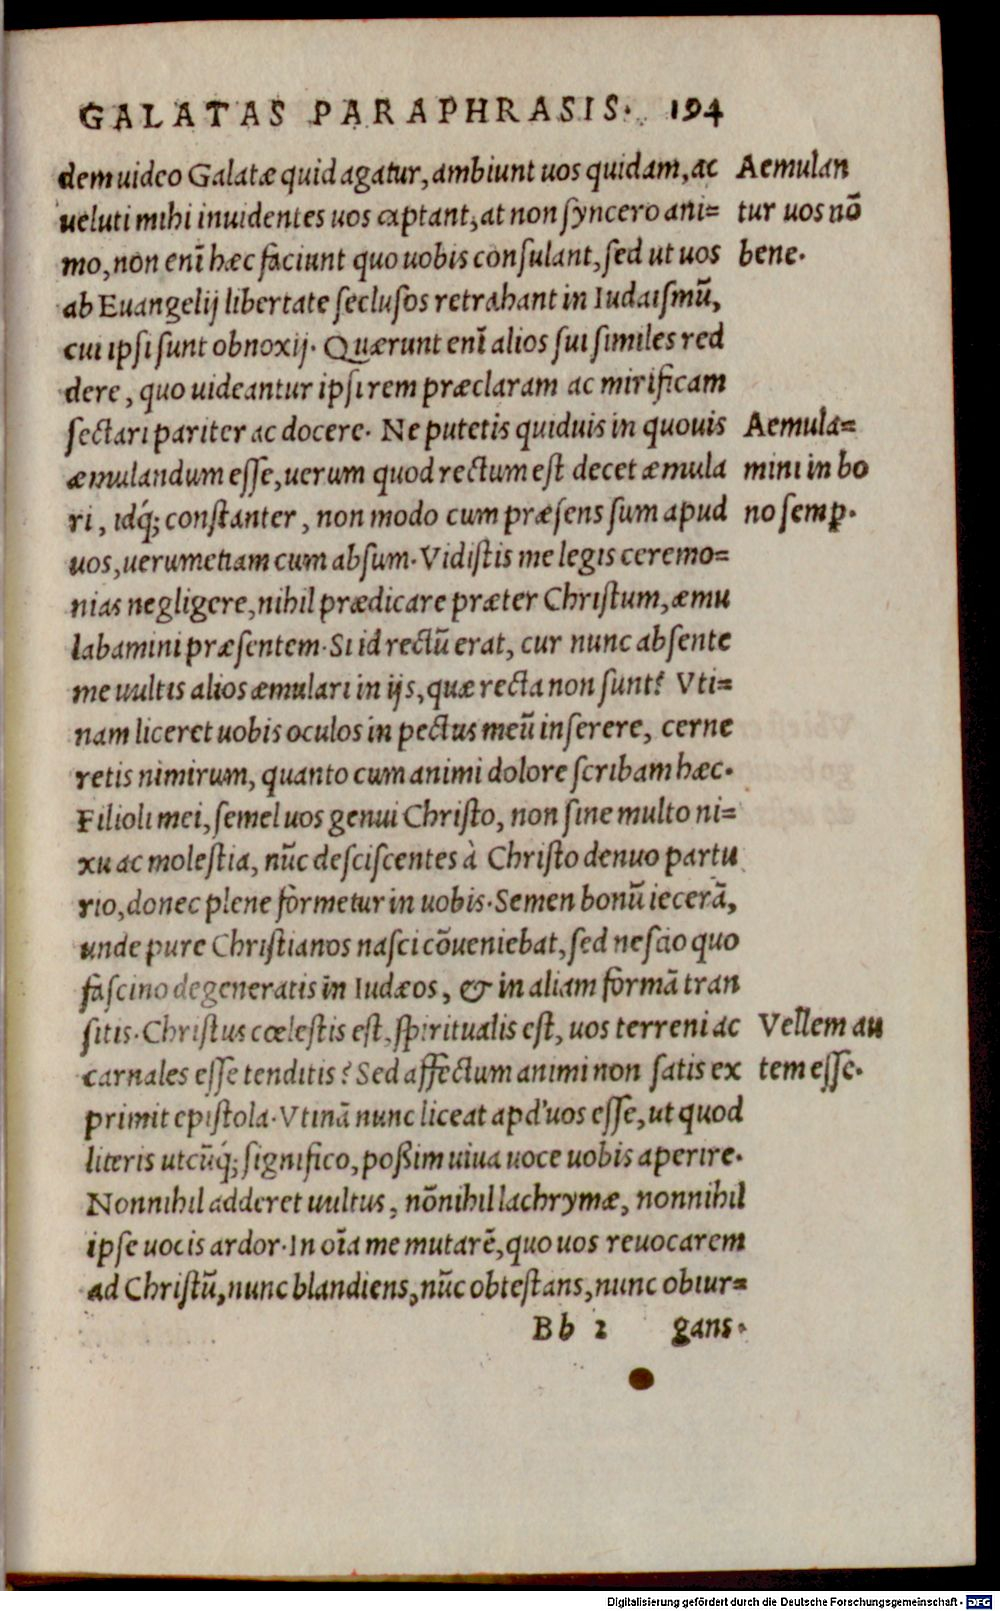 GALATAS PARAPHRASIS. 194
dem uideo Galatæ quid agatur, ambiunt uos quidam, ac
ueluti mihi inuidentes uos captant, at non syncero ani=
mo, non enī hæc faciunt quo uobis consulant, sed ut uos
ab Euangelij libertate seclusos retrahant in Iudaismū,
cui ipsi sunt obnoxij. Quærunt enī alios sui similes red
dere, quo uideantur ipsi rem præclaram ac mirificam
sectari pariter ac docere. Ne putetis quiduis in quouis
æmulandum esse, uerum quod rectum est decet æmula
ri, idq́; constanter, non modo cum præsens sum apud
uos, uerumetiam cum absum. Vidistis me legis ceremo=
nias negligere, nihil prædicare præter Christum, æmu
labamini præsentem. Si id rectū erat, cur nunc absente
me uultis alios æmulari in ijs, quæ recta non sunt? Vti=
nam liceret uobis oculos in pectus meū inserere, cerne
retis nimirum, quanto cum animi dolore scribam hæc.
Filioli mei, semel uos genui Christo, non sine multo ni=
xu ac molestia, nūc desciscentes à Christo denuo partu
rio, donec plene formetur in uobis. Semen bonū iecerā,
unde pure Christianos nasci cōueniebat, sed nescio quo
fascino degeneratis in Iudæos, & in aliam formā tran
sitis. Christus cœlestis est, spiritualis est, uos terreni ac
carnales esse tenditis? Sed affectum animi non satis ex
primit epistola. Vtinā nunc liceat apd' uos esse, ut quod
literis utcūq́; significo, poßim uiua uoce uobis aperire.
Nonnihil adderet uultus, nōnihil lachrymæ, nonnihil
ipse uocis ardor. In oīa me mutarē, quo uos reuocarem
ad Christū, nunc blandiens, nūc obtestans, nunc obiur=
Bb 2 gans.
Aemulan
tur uos nō
bene.
Aemula=
mini in bo
no semp̱.
Vellem au
tem esse.
Digitalisierung gefördert durch die Deutsche Forschungsgemeinschaft - DFG